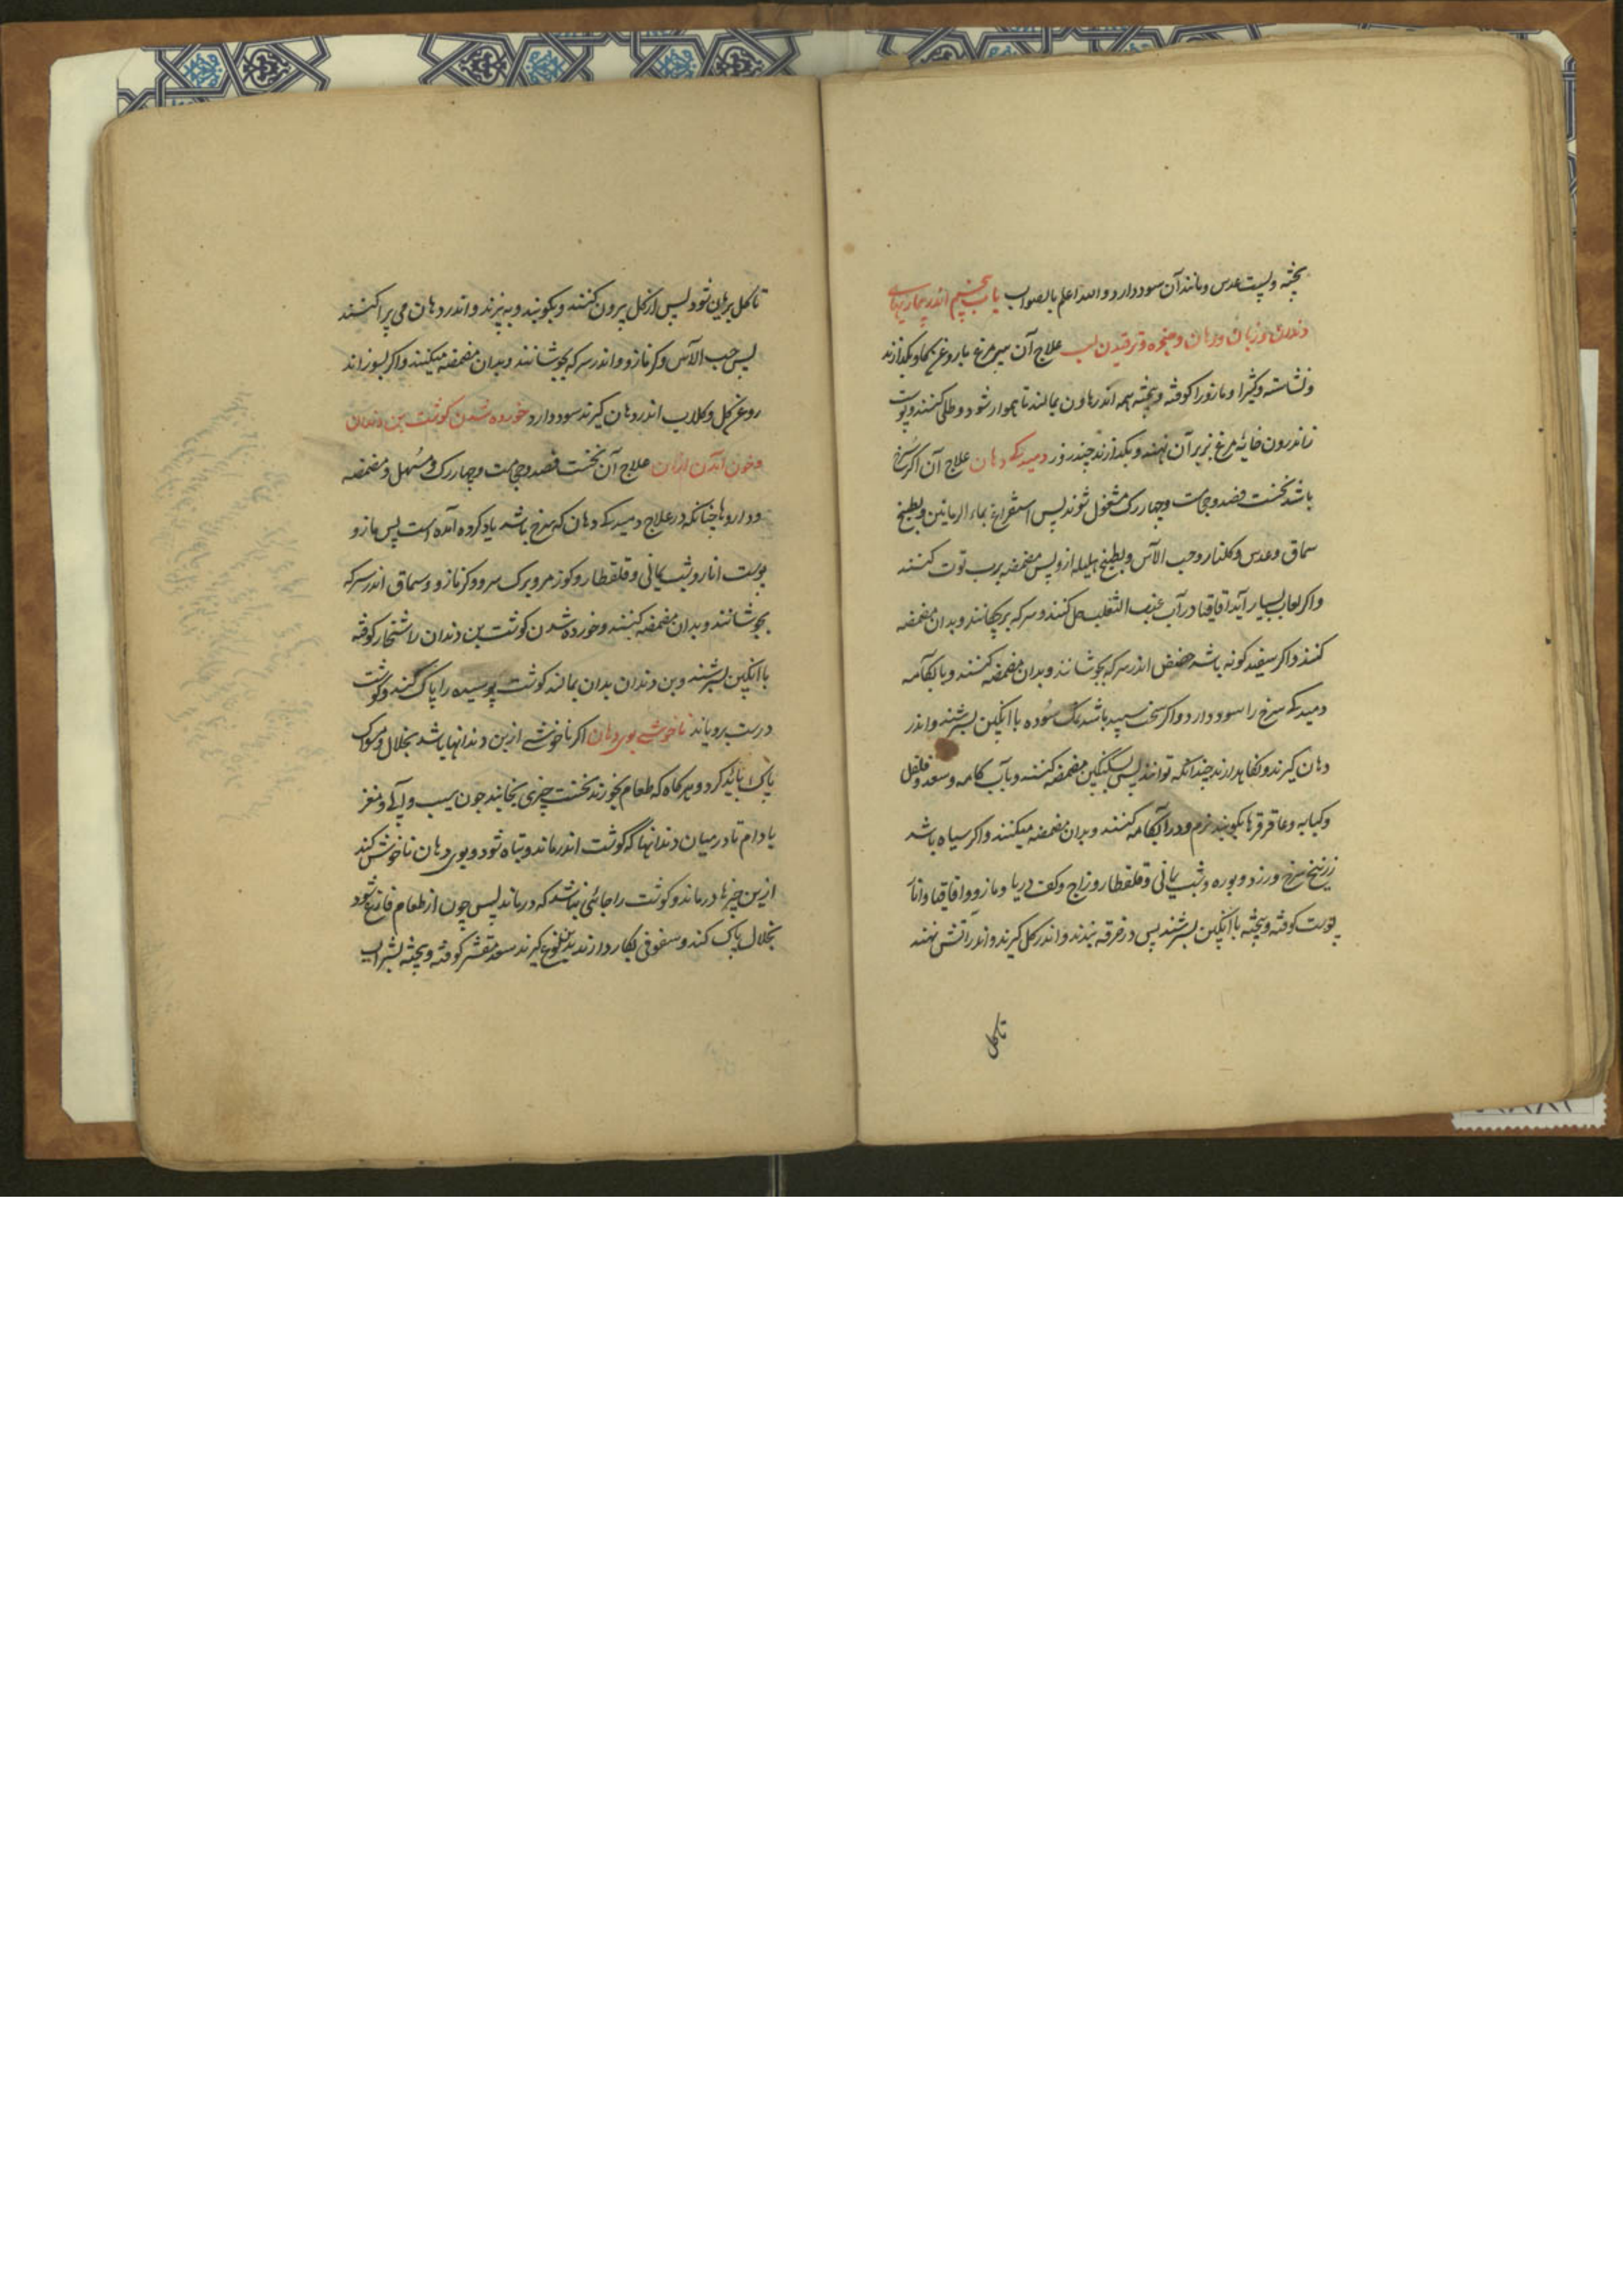 پخته و پست عدس و مانند آن سود دارد و الله اعلم بالصواب باب پنجم اندر بیماریهای
دندان و زبان و دهان و حنجره و ترقیدن لب علاج آن سپر مرغ با روغن بکدازند
و نشاسته و کثیرا و مازو را کوفته و بیخته همه اندر هاون بمالند تا هموار شود و طلی کنند و پوست
زاندرون خایه مرغ بزبر آن نهند و بکدازند چندروز دمیدکی دهان علاج آن اکر سرخ
باشد نخست فصد و حجامت و چهار رک مشغول شوند پس استفراغ بماء الرمانین و بطبیخ
سماق و عدس و کلنار و حب الآس و بطبیخ هلیله ازو پس مضمضه برب توت کنند
و اکر لعاب بسیار آید اقاقیا در آب عنب الثعلب حل کنند و سرکه برچکانند و بدان مضمضه
کنند و اکر سفید کونه باشد حضض اندر سرکه بجوشانند و بدان مضمضه کنند و بابکامه
دمیدکی سرخ را سود دارد و اکر سخت سپید باشد نمک سوده با انکبین بسرشند و اندر
دهان کیرند و نکاهدارند چندانکه توانند پس بسکنکبین مضمضه کنند و بآب کامه و سعد و فلفل
و کبابه و عاقرقرها بکوبند نرم و در آبکامه کنند و بدان مضمضه میکنند و اکر سیاه باشد
زرنیخ سرخ و زرد و بوره و شب یمانی و قلقطار و زاج و کف دریا و مازو و اقاقیا و انار
پوست کوفته و بیخته با انکبین بسرشند پس در خرقه بندند و اندر کل کیرند و اندر آتش نهند
تا کل
تا کل بریان شود پس از کل بیرون کنند و بکوبند و به بیزند و اندر دهان می پراکنند
پس حب الآس و کزمازو و اندر سرکه بجوشانند و بدان مضمضه میکنند و اکر بسوزاند
روغن کل و کلاب اندر دهان کیرند سود دارد خورده شدن کوشت بن دندان
و خون آمدن ازان علاج آن نخست فصد و حجامت و چهار رک و مسهل و مضمضه
و داروها چنانکه در علاج دمیدکی دهان که سرخ باشد یاد کرده آمده است پس مازو
پوست انار و شب یمانی و قلقطار و کوز مرو و برک سرو و کزمازو و سماق اندر سرکه
بجوشانند و بدان مضمضه کنند و خورده شدن کوشت بن دندان را شنجار کوفته
با انکبین بسرشند و بن دندان بدان بمالند کوشت پوسیده را پاک کند و کوشت
درست برویاند ناخوشی بوی دهان اکر ناخوشی ازبن دندانها باشد بخلال و مسواک
پاک باید کرد و هر کاه که طعام بخورند نخست چیزی بخایند چون سیب و آبی و مغز
بادام تا در میان دندانها که کوشت اندر ماند و تباه شود و بوی دهان ناخوش کند
ازین چیزها درماند و کوشت را جائی نباشد که درماند پس چون از طعام فارغ شود
بخلال پاک کند و سفوفی بکار دارند بدین نوع کیرند سعد مقشر کوفته و بیخته بشراب